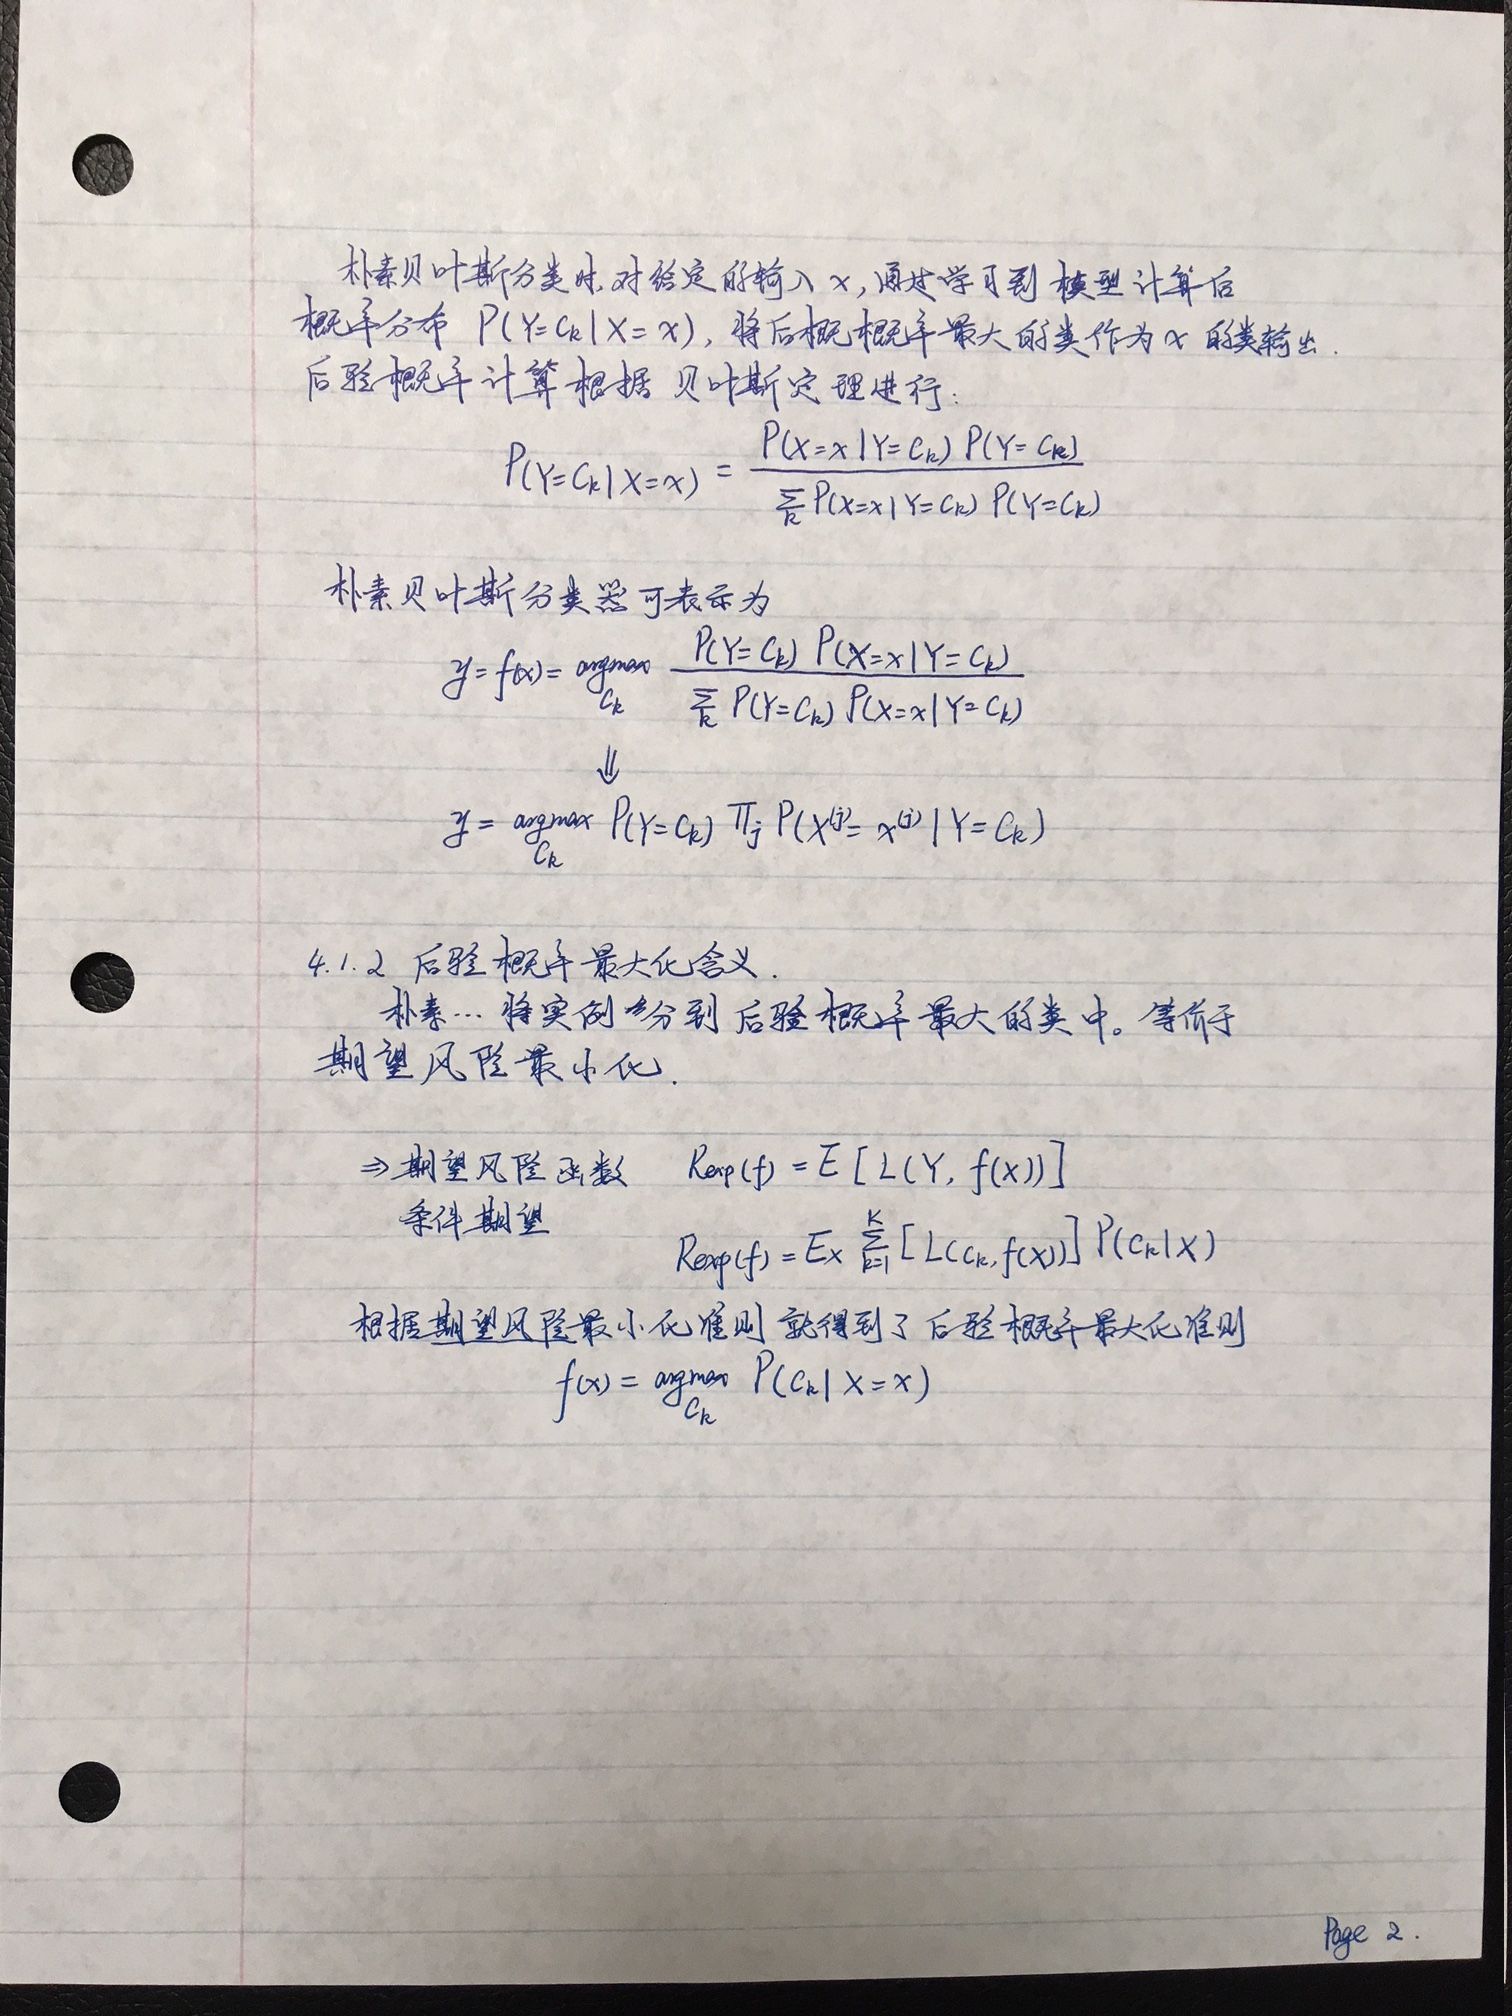 朴素贝叶斯分类时,对给定的输入 x,通过学习到模型计算后
概率分布 P(Y=Ck|X=x),将后概概率最大的类作为 x 的类输出.
后验概率计算根据贝叶斯定理进行:
P(Y=Ck|X=x) = P(X=x|Y=Ck) P(Y=Ck) / Σk P(X=x|Y=Ck) P(Y=Ck)
朴素贝叶斯分类器可表示为
y=f(x)= argmax Ck P(Y=Ck) P(X=x|Y=Ck) / Σk P(Y=Ck) P(X=x|Y=Ck)
⇓
y = argmax Ck P(Y=Ck) Πj P(X(j)=x(j)|Y=Ck)
4.1.2 后验概率最大化含义.
朴素…将实例分到后验概率最大的类中。等价于
期望风险最小化.
⇒期望风险函数 Rexp(f) = E[L(Y, f(X))]
条件期望
Rexp(f) = Ex Σ K k=1 [L(Ck, f(X))] P(Ck|X)
根据期望风险最小化准则就得到了后验概率最大化准则
f(x) = argmax Ck P(Ck|X=x)
Page 2.